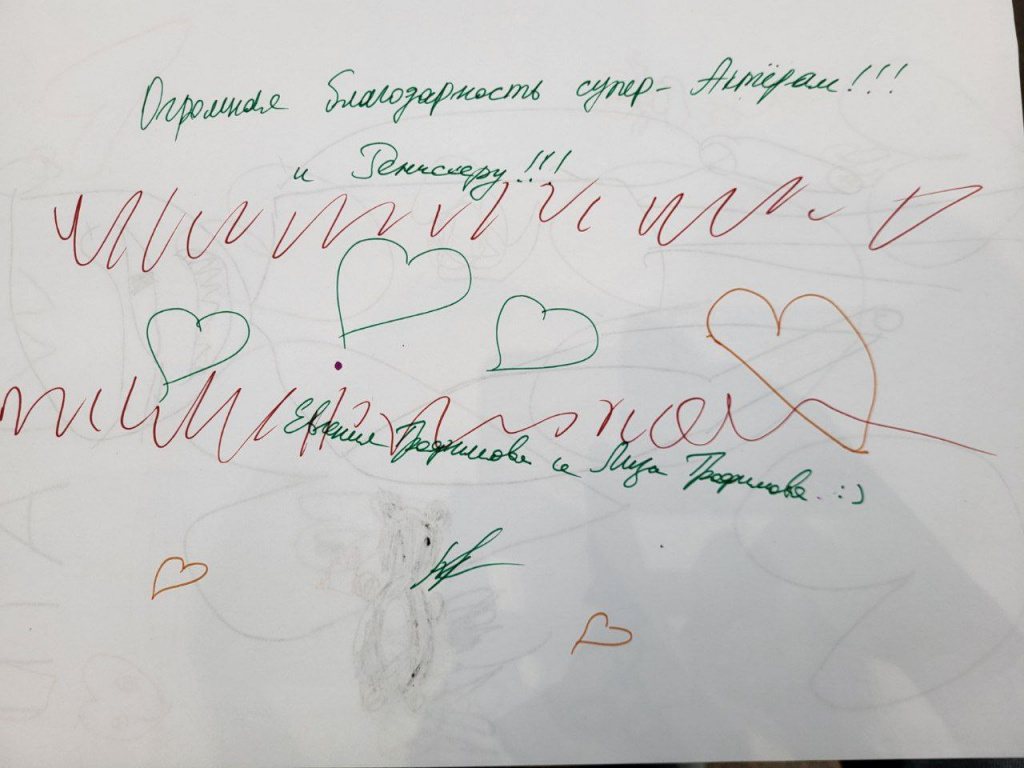 Огромная благодарность супер-Актёрам!!!
и Режиссеру!!!
Евгения Трофимова и Лиза Трофимова :)